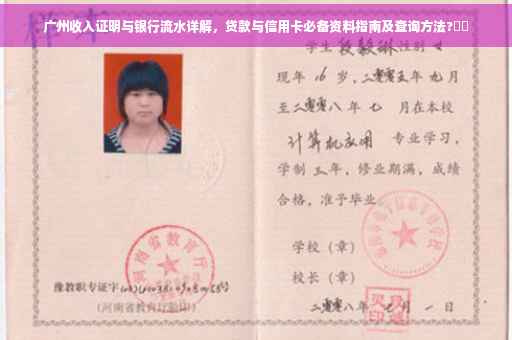 广州收入证明与银行流水详解，贷款与信用卡必备资料指南及查询方法?
样本
学生 段毅琳 性别 女
现年 16 岁，二零零五年 九月
至二零零八年 七 月在本校
计算机应用 专业学习，
学制 三年，修业期满，成绩
合格，准予毕业
学校（章）
校长（章）
河南省教育厅
豫教职专证字
（河南省教育厅验印）
二零零八年 七 月 一 日